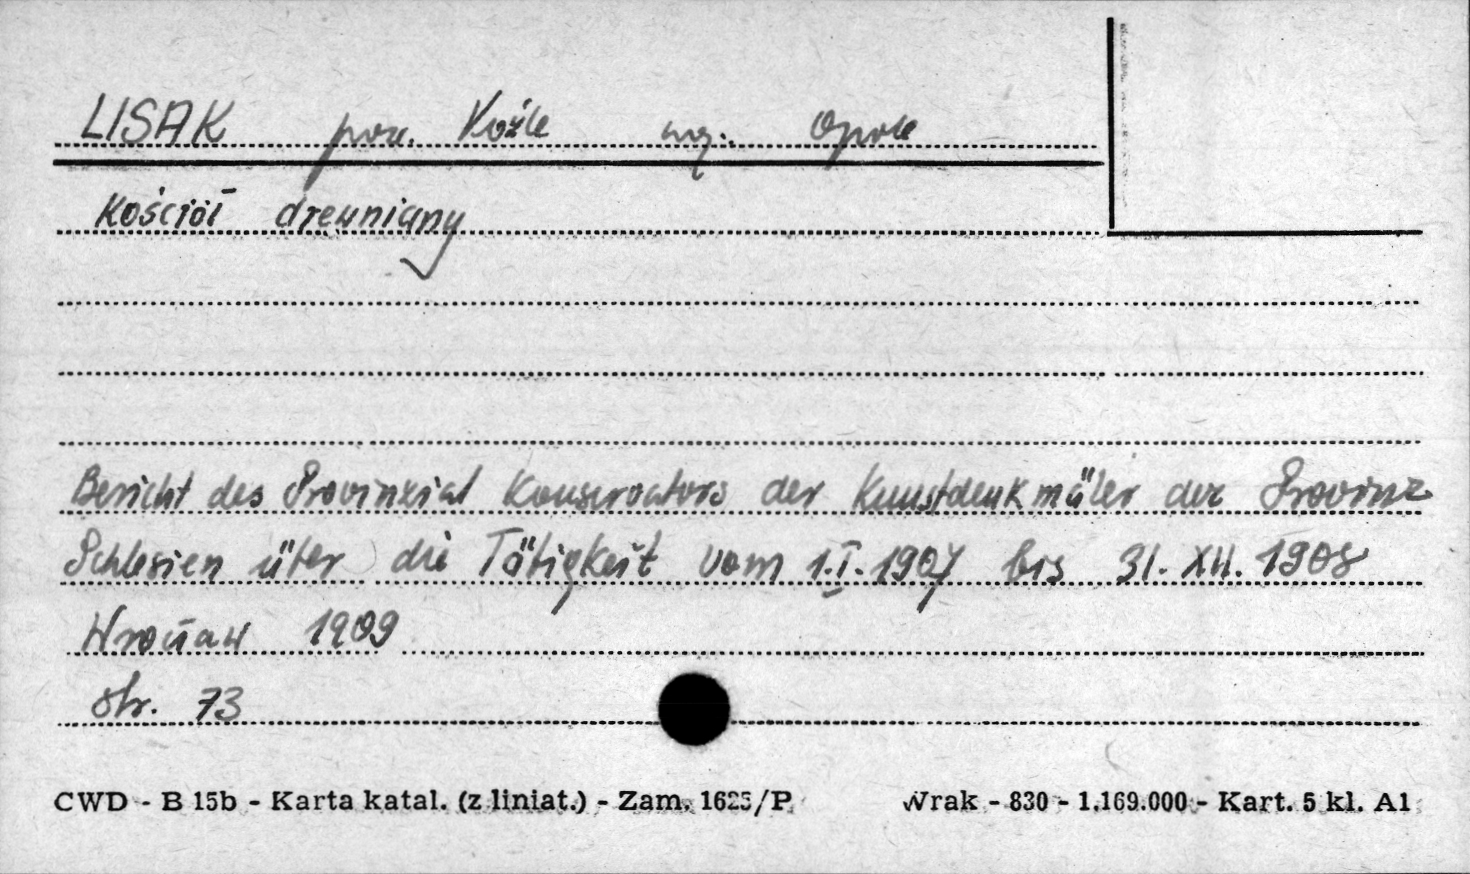 LISAK pow. Koźle woj. Opole
Kościół drewniany
Bericht des Provinzial Konservators der Kunstdenkmäler der Provinz
Schlesien über die Tätigkeit vom 1.I.1907 bis 31.XII.1908
Wrocław 1909
str. 73
CWD - B 15b - Karta katal. (z liniat.) - Zam. 1625/P Wrak - 830 - 1.169.000 - Kart. 5 kl. A1